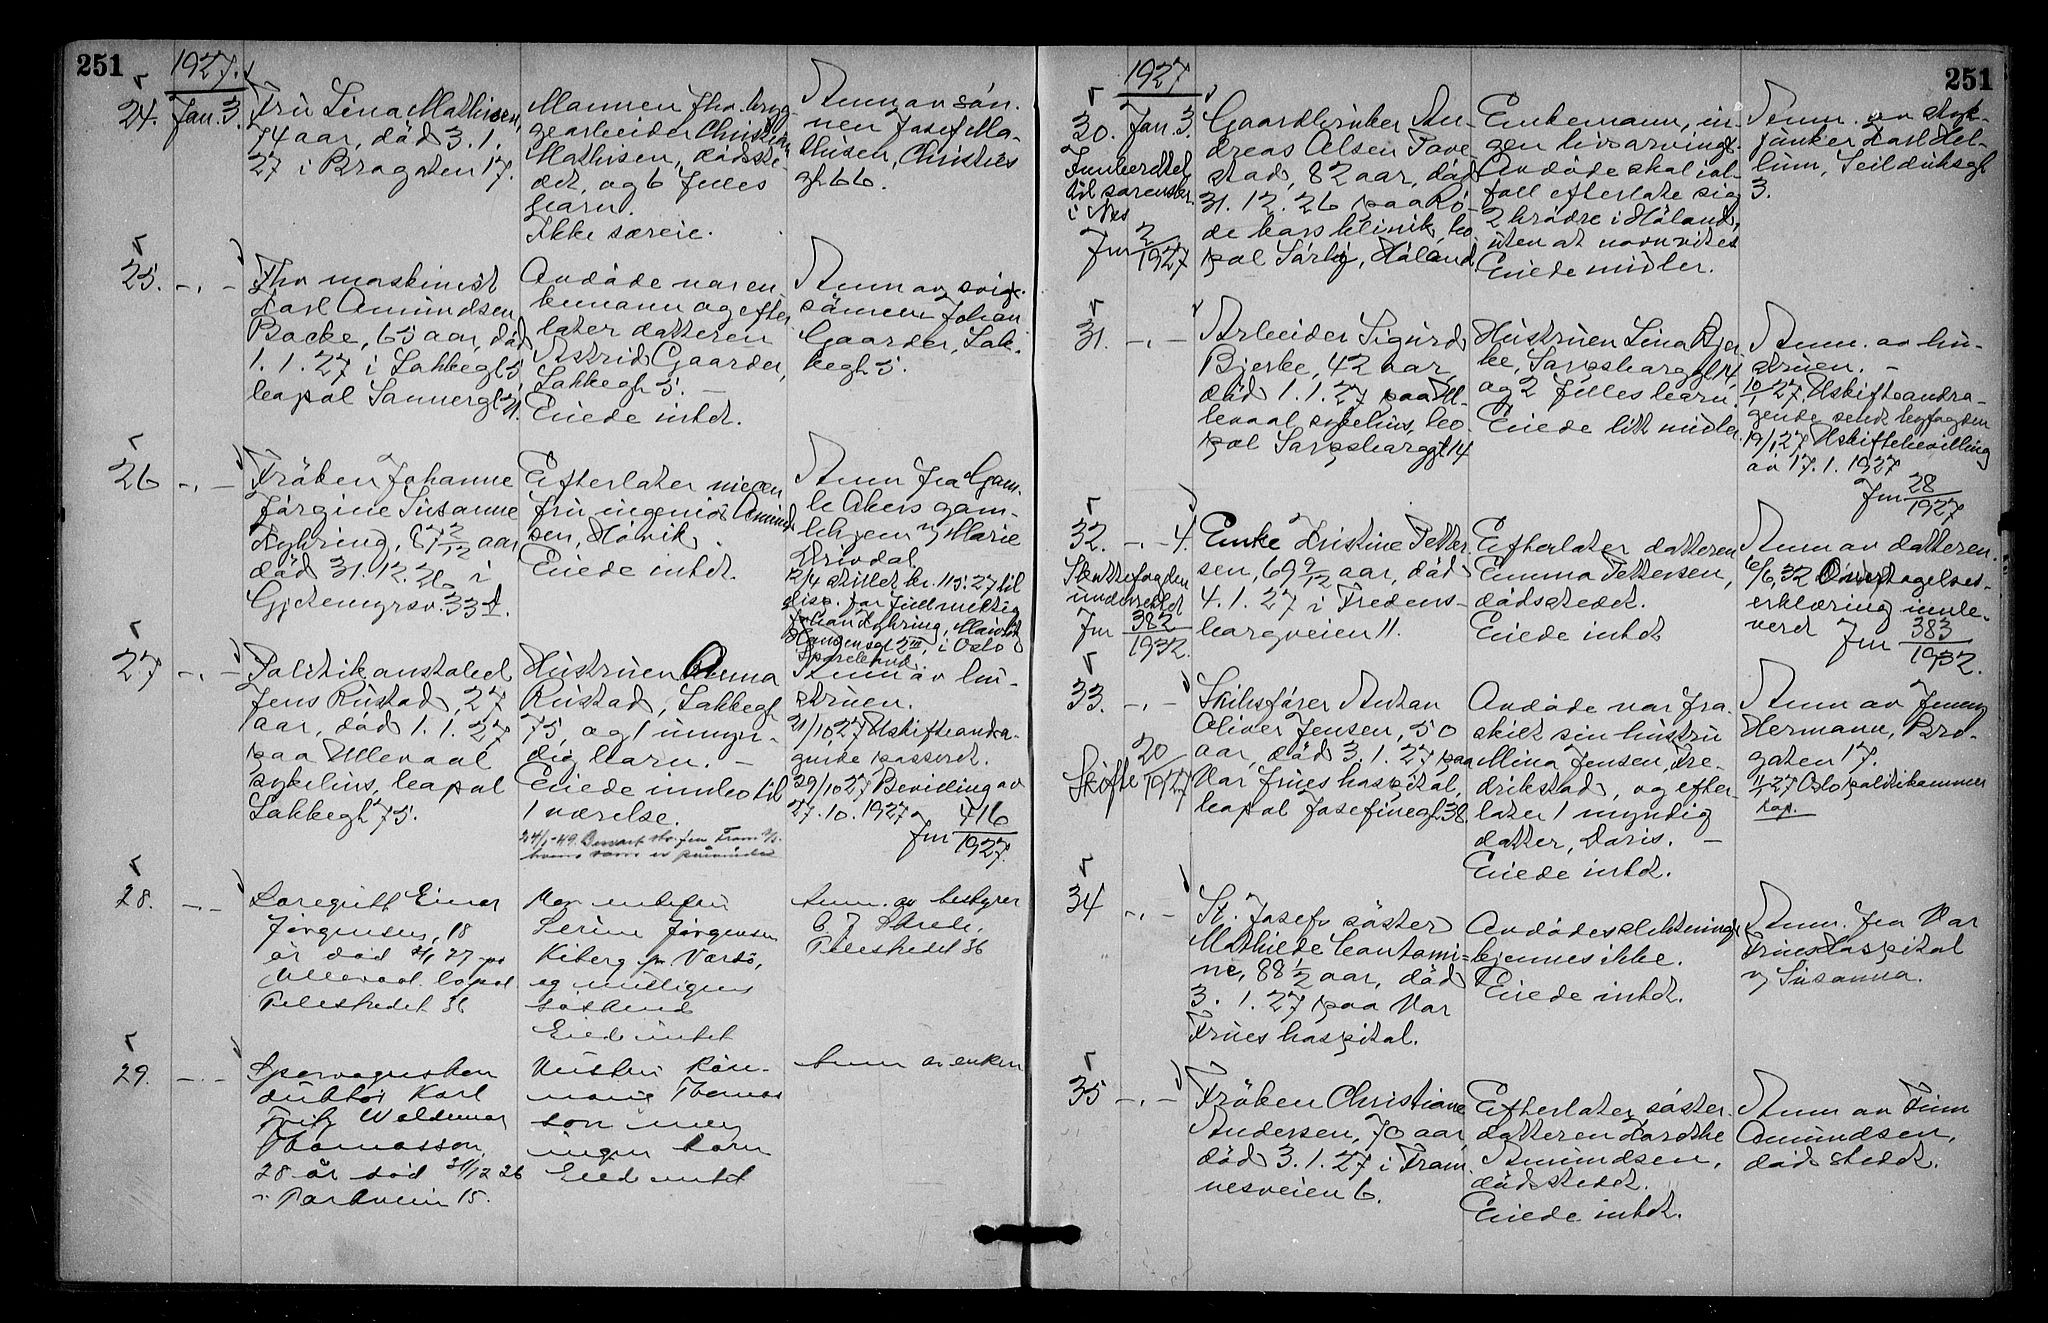 251
1927.
24. Jan. 3.
Fru Lina Mathisen,
74 aar, död 3. 1.
27 i Brogaten 17.
Mannen fhv. bryg-
gearbeider Christian
Mathisen, dödsste-
det, og 6 fælles
barn.
Ikke særeie.
Anm av sön-
nen Josef Ma-
thisen, Christies
gt. 66.
25. -„-
Fhv maskinist
Karl Amundsen
Backe, 65 aar, död
1. 1. 27 i Lakkegt 5
bopæl Sannergt 21.
Avdöde var en-
kemann og efter-
later datteren
Astrid Gaarder,
Lakkegt. 5. -
Eiede intet.
Anm av svige-
sönnen Johan
Gaarder, Lak-
kegt. 5.
26 -„-
Fröken Johanne
Jörgine Susanne
Dyhring, 87 2/12 aar
död 31. 12. 26 i
Gjetemyrsv. 33 d.
Efterlater niecen
fru ingeniör Amund-
sen, Hövik.
Eiede intet.
Anm fra Gam-
le Akers gam-
lehjem v/ Marie
Drivdal.
12/4 stillet kr. 115.27 til
disp. for fuldmektig
Johan Dyhring,
i Oslo
Sparebank.
27 -„-
Politikonstabel
Jens Rustad, 27
aar, död 1. 1. 27
paa Ullevaal
sykehus, bopæl
Lakkegt 75.
Hustruen Anna
Rustad, Lakkegt
75, og 1 umyn-
dig barn. -
Eiede innbo til
1 værelse.
Anm av hu-
struen.
21/10 27 Uskifteandra-
gende passert.
29/10 27 Bevilling av
27. 10. 1927
Jnr 416/1927.
28. -„-
Loregutt Einar
Jörgensen, 18
år död 2/1 27 på
Ullevaal. bopæl
Pilestredet 36
Mor enkefru
Serine Jörgensen
Kiberg pr. Vardö,
og muligens
söskend
Eied intet
Anm. av bestyrer
Pilestredet 36
29. -„-
Sporvognskon
duktör Karl
Fritz Waldemar
Thomasson,
28 år död 31/12 26
i Parkveien 15.
Hustru Rose-
marie Thomas
son men
ingen barn
Eied intet
Anm av enken
251
1927
30. Jan. 3.
Innberettet
til sorenskr.
i Nes
Jnr 2/1927
Gaardbruker An-
dreas Olsen Tove
stad, 82 aar, död
31. 12. 26 paa Rö-
de kors klinik, bo
pæl Sörli, Höland
Enkemann, in-
gen livsarvinge.
Avdöde skal ial-
fall efterlate sig
2 brödre i Höland,
uten at navn vites
Eiede midler.
Anm. av styk-
junker Karl Hel-
lum, Seilduksgt
3.
31. -„-
Arbeider Sigurd
Bjerke, 42 aar,
död 1. 1. 27 paa Ul-
levaal sykehus, bo
pæl Sarpsborggt 14
Hustruen Lina Bjer
ke, Sarpsborggt 14,
og 2 fælles barn.
Eiede litt midler.
Anm. av hu-
struen. -
10/1 27 Uskifteandra-
gende sendt byfogden
19/1 27 Uskiftebevilling
av 17. 1. 1927
Jnr 28/1927
32. -„- 4.
Skattefogden
underrettet
Jnr 382/1932.
Enke Kristine Petter
sen, 69 9/12 aar, död
4. 1. 27 i Fredens-
borgveien 11.
Efterlater datteren
Emma Pettersen,
dödsstedet.
Eiede intet
Anm av datteren.
6/6 32 Overtagelses-
erklæring innle-
vert Jnr 383/1932.
33. -„-
Skifte 20/1927
Skibsförer Anton
Oliver Jensen, 50
aar, död 3. 1. 27 paa
Vor Frues hospital,
bopæl Josefinegt. 38
Avdöde var fra-
skilt sin hustru
Mina Jensen, Fre-
drikstad, og efter-
later 1 myndig
datter, Doris. -
Eiede intet.
Anm av Jenny
Hermann, Bro-
gaten 17.
11/1 27 Oslo politikammer
rap.
34 -„-
St. Josefs söster
Mathilde Cantomi-
ne, 88 1/2 aar, död
3. 1. 27 paa Vor
Frues hospital.
Avdödes slektninge
kjennes ikke.
Eiede intet.
Anm. fra Vor
Frues Hospital
v/ Susanna.
35 -„-
Fröken Christiane
Andersen, 70 aar
död 3. 1. 27 i Fram
nesveien 6.
Efterlater söster-
datteren Dorthe
Amundsen,
dödsstedet.
Eiede intet.
Anm av Finn
Amundsen,
dödsstedet.